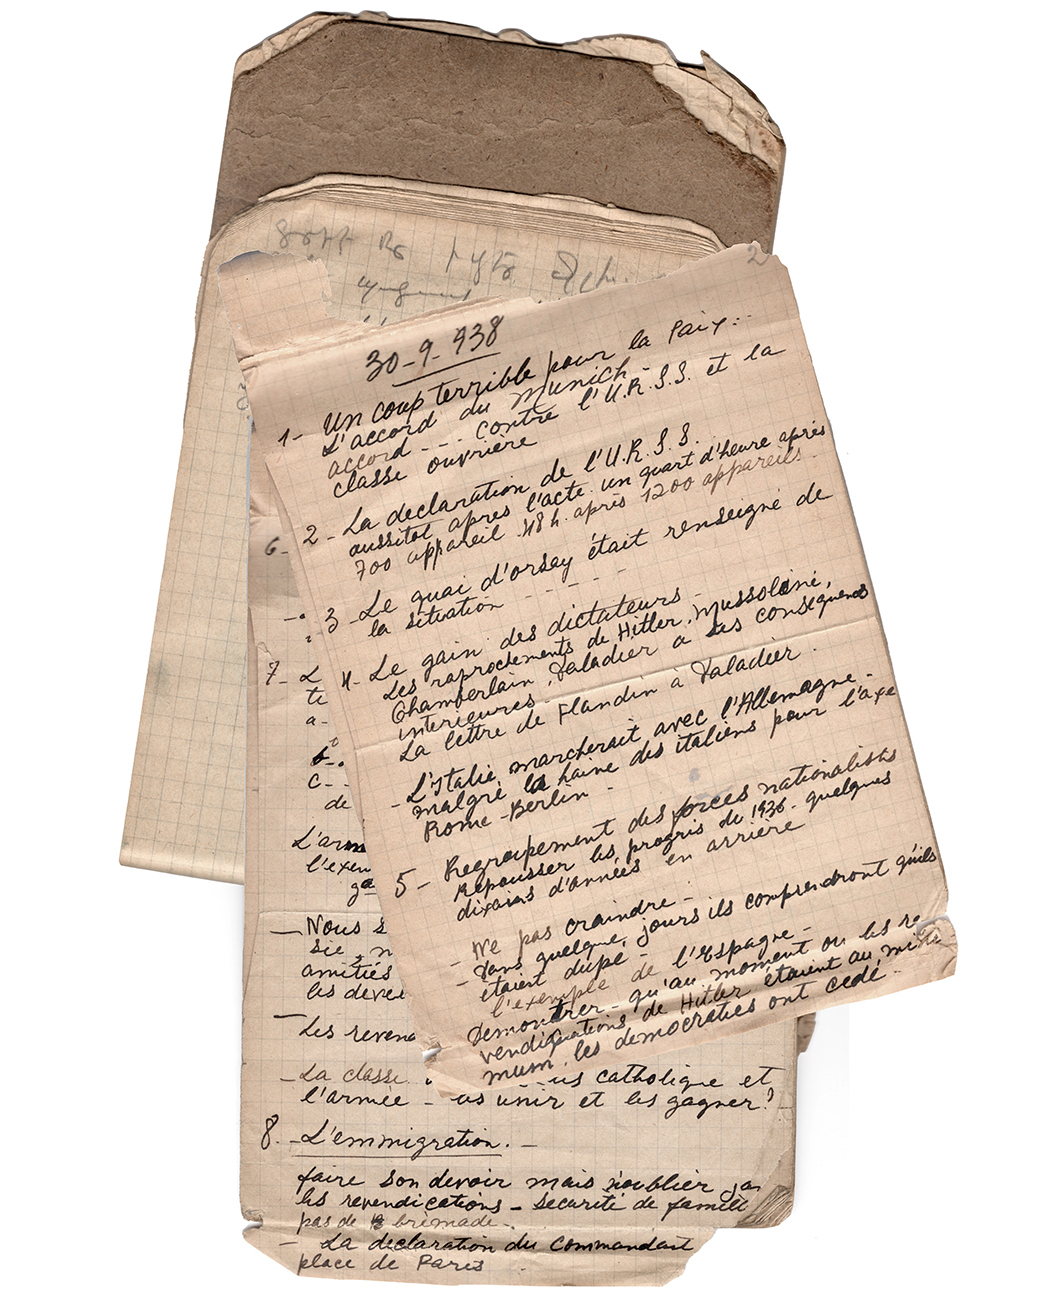 2
30-9-938
Un coup terrible pour la Paix..
1- L'accord du Munich -
accord - - - contre l'U.R.S.S. et la
classe ouvrière
2 - La declaration de l'U.R.S.S.
aussitot apres l'acte. un quart d'heure après
700 appareil. 48 h. après 1200 appareils.
3 - Le quai d'orsay était renseigné de
la situation - - - -
4- Le gain des dictateurs -
Les raprochements de Hitler, Mussolini,
Chamberlain, Daladier a ses consequences
interieures.
La lettre de Flandin à Daladier.
- L'Italie marcherait avec l'Allemagne -
malgré la haine des italiens pour l'axe
Rome-Berlin -
5 - Regroupement des forces nationalists
Repousser les progris de 1936 - quelques
dixains d'années en arrière
- Ne pas craindre -
- Dans quelque, jours ils comprendront qu'ils
étaient dupe -
l'exemple de l'Espagne -
Demontrer - qu'au moment ou les re
vendications de Hitler étaient au
mum. les democraties ont cedé.
6-
7- L
te
a-
b-
c-
de
L'arm
l'exem
ga
- Nous s
sie, n
amitiés
les devei
- Les reven
- La classe catholique et
l'armée - unir et les gagner?
8. - L'emmigration. -
faire son devoir mais n'oublier
les revendications - securité de famill
pas de brimade -
- La declaration du Commandant
place de Paris